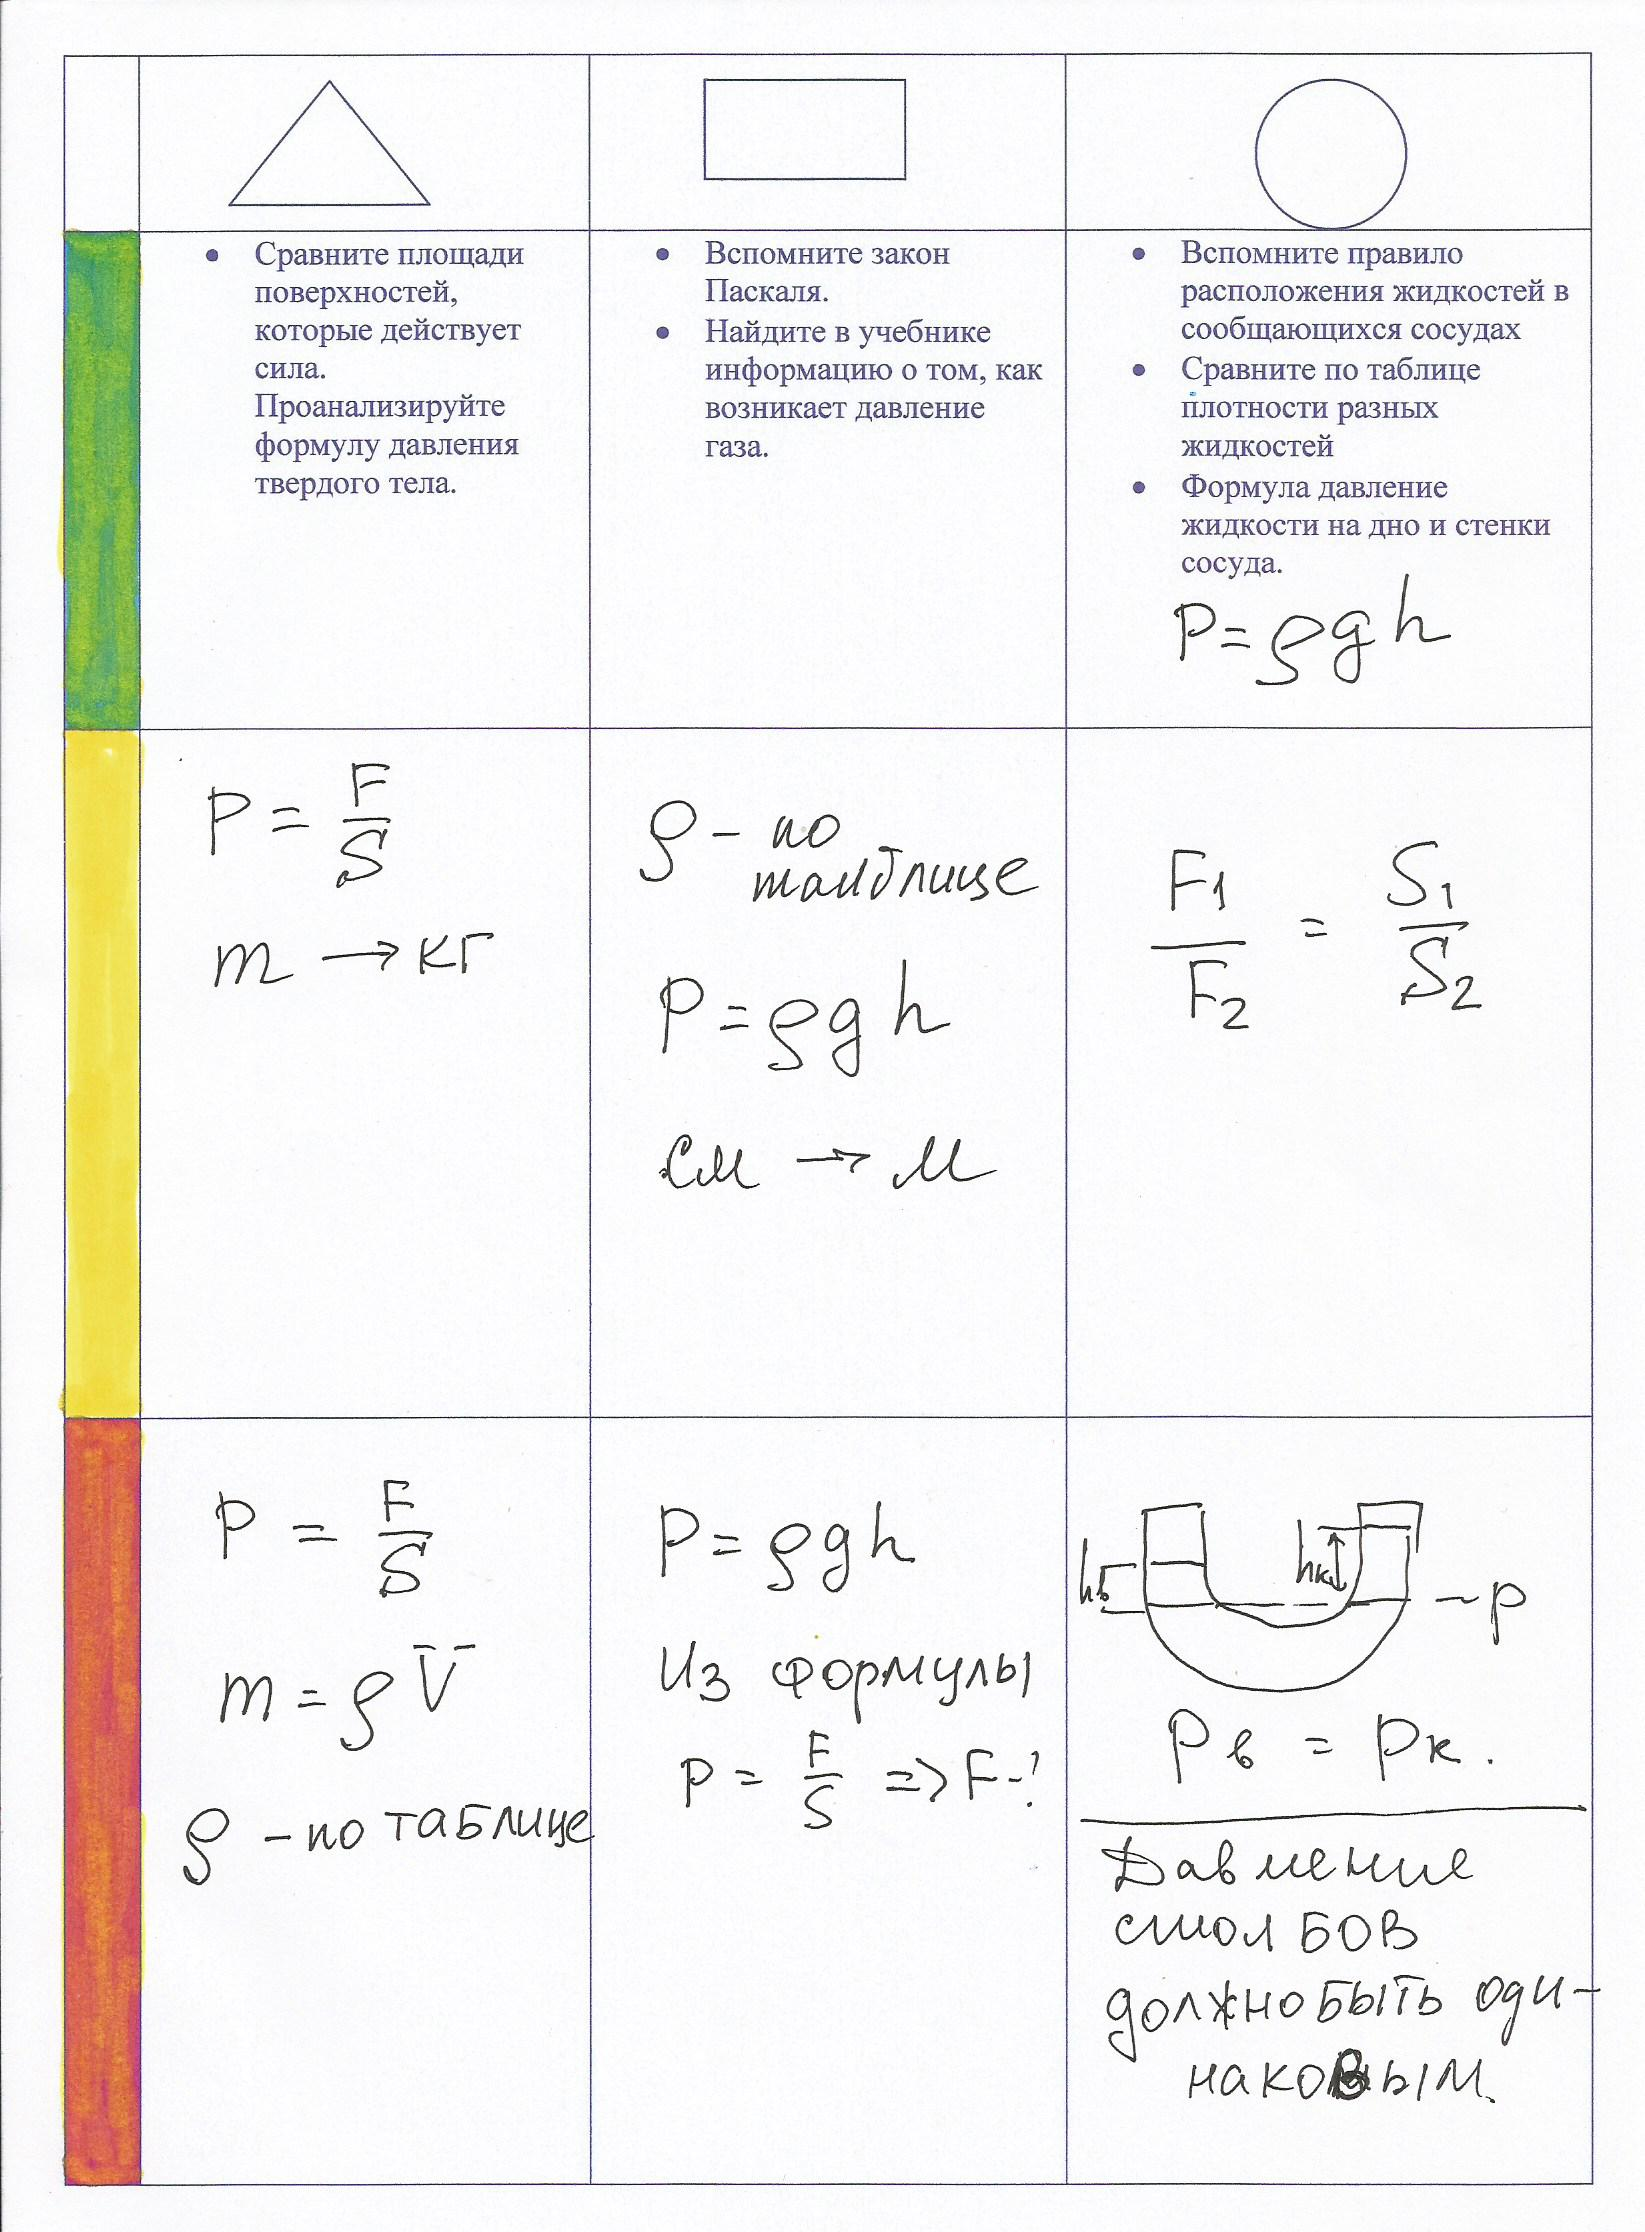 • Сравните площади
поверхностей,
которые действует
сила.
Проанализируйте
формулу давления
твердого тела.
• Вспомните закон
Паскаля.
• Найдите в учебнике
информацию о том, как
возникает давление
газа.
• Вспомните правило
расположения жидкостей в
сообщающихся сосудах
• Сравните по таблице
плотности разных
жидкостей
• Формула давление
жидкости на дно и стенки
сосуда.
P = ρgh
P = F/S
m → кг
ρ - по
таблице
P = ρgh
см → м
F1/F2 = S1/S2
P = F/S
m = ρV
ρ - по таблице
P = ρgh
Из формулы
P = F/S => F-?
hв
hк
~ р
Рв = Рк.
Давление
столбов
должно быть оди-
наковым.